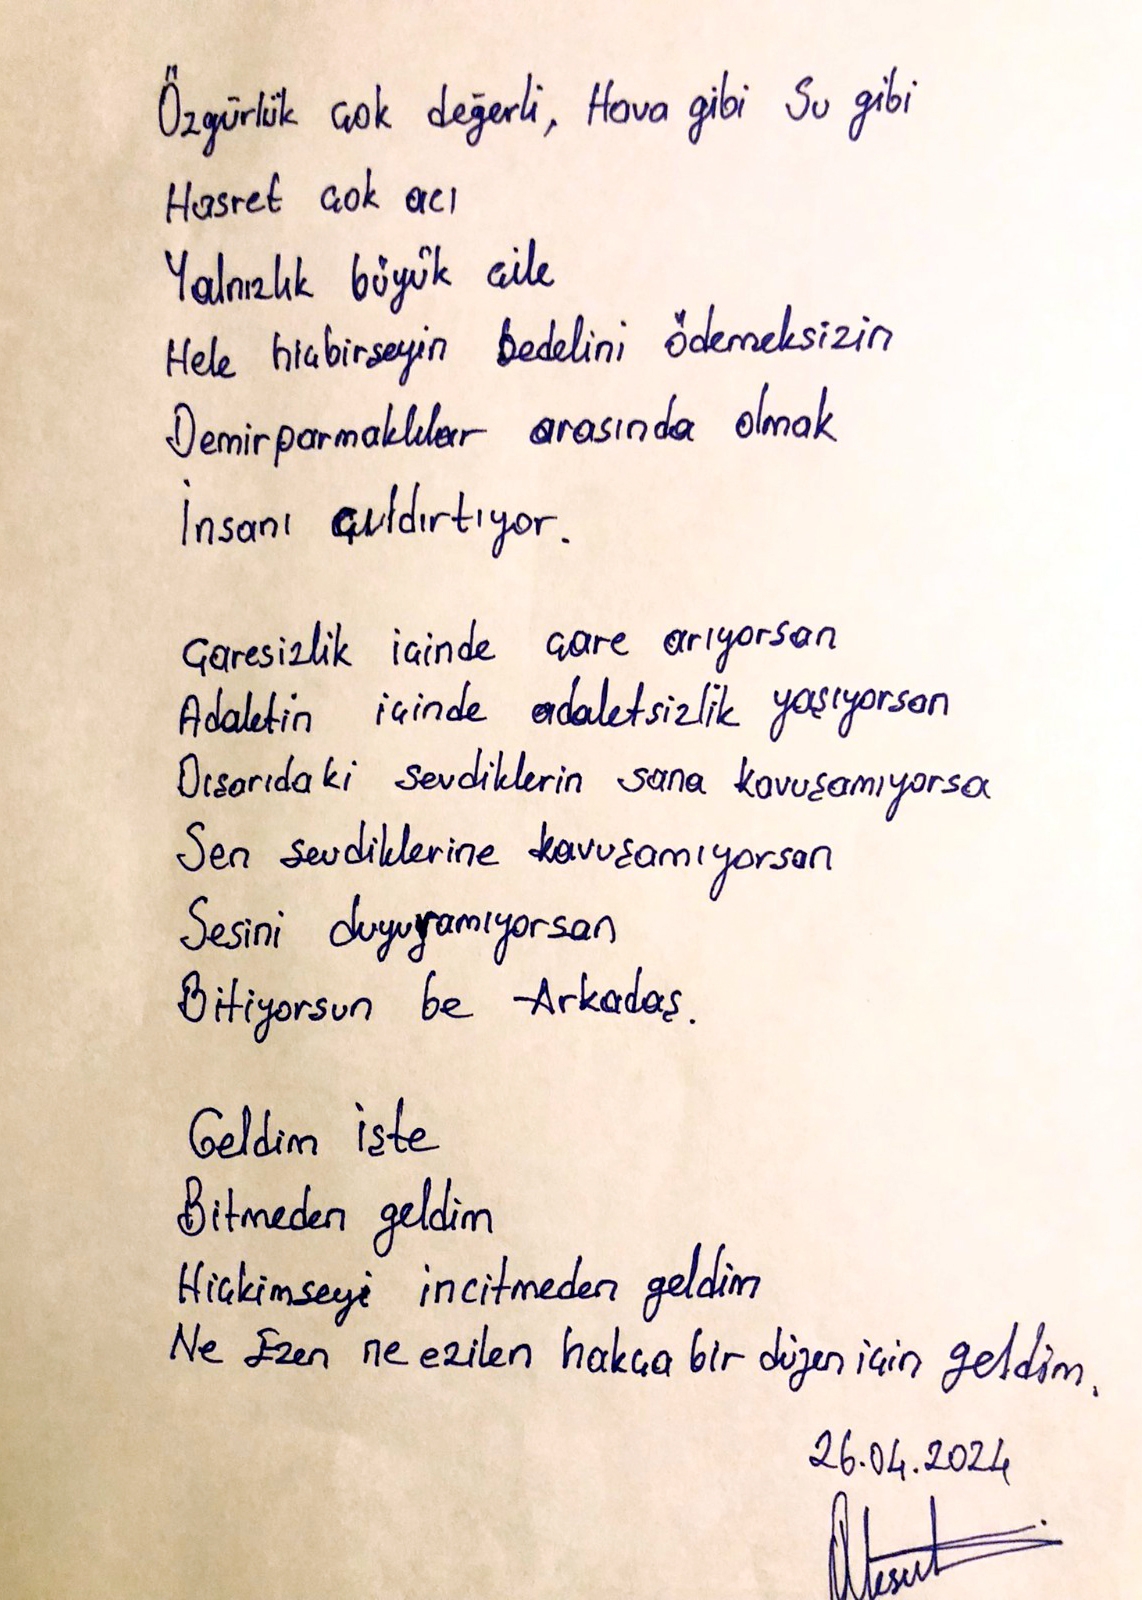 Özgürlük çok değerli, Hava gibi Su gibi
Hasret çok acı
Yalnızlık büyük çile
Hele hiçbirseyin bedelini ödemeksizin
Demirparmaklılar arasında olmak
İnsanı çıldırtıyor.
Çaresizlik içinde çare arıyorsan
Adaletin içinde adaletsizlik yaşıyorsan
Dışarıdaki sevdiklerin sana kavuşamıyorsa
Sen sevdiklerine kavuşamıyorsan
Sesini duyuramıyorsan
Bitiyorsun be Arkadaş.
Geldim işte
Bitmeden geldim
Hiçkimseyi incitmeden geldim
Ne Ezen ne ezilen hakça bir düzen için geldim.
26.04.2024